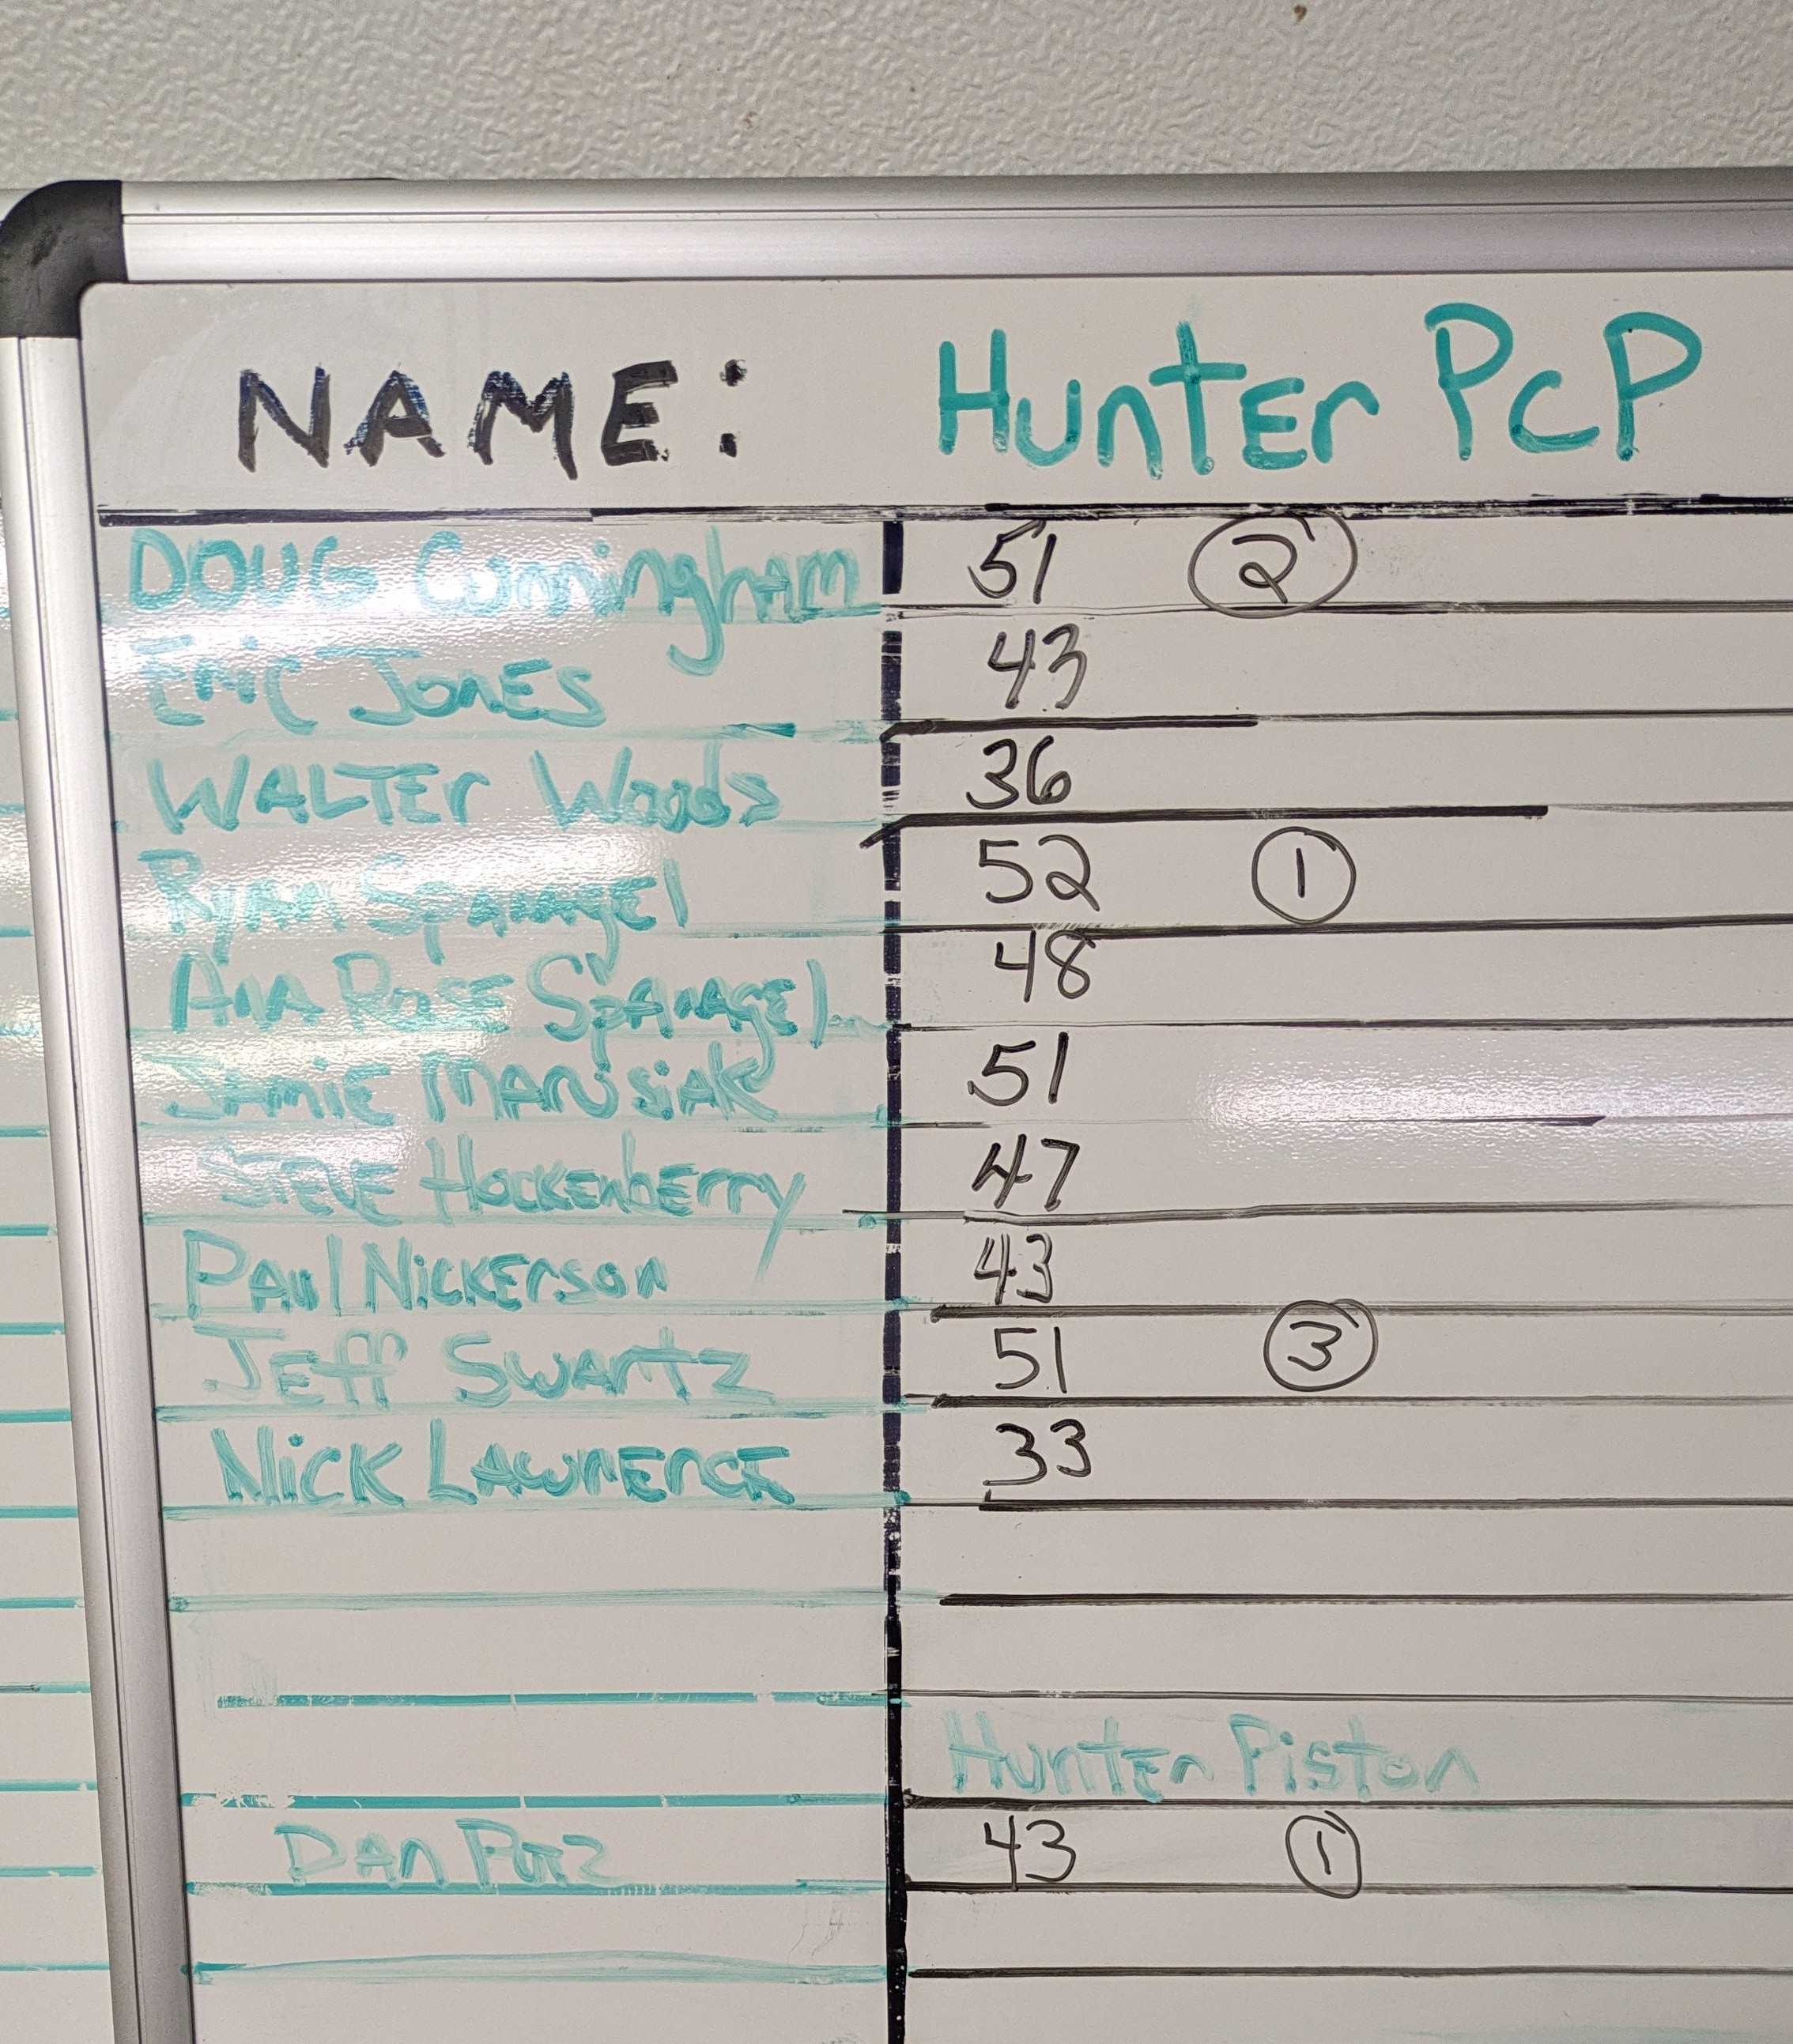 NAME: Hunter PCP
DOUG Cunningham 51 2
Eric Jones 43
WALTER Woods 36
Ryan Spanagel 52 1
Ana Rose Spanagel 48
Jamie 51
STEVE Hockenberry 47
Paul Nickerson 43
Jeff Swartz 51 3
Nick Lawrence 33
Hunter Piston
Dan 43 1